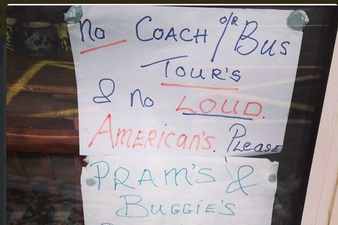 No COACH O/R / BUS
TOUR'S
& No LOUD.
AMERICAN'S. PLEASE
PRAM'S &
BUGGIE'S